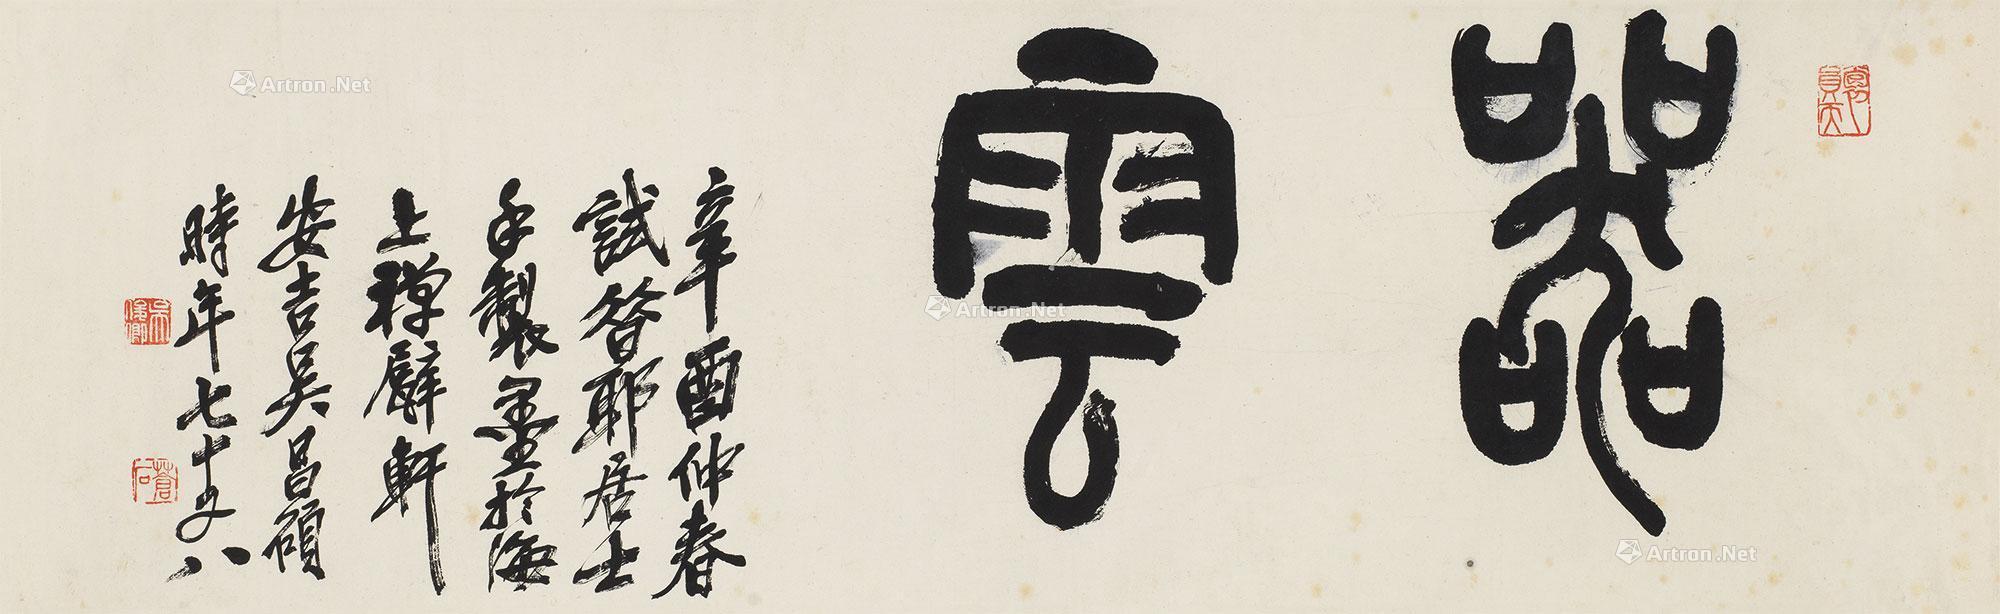 器
雲
辛酉仲春
試答耶居士
手製墨於海
上禪甓軒
安吉吳昌碩
時年七十又八
吳俊卿
蒼石
Artron.Net
Artron.Net
Artron.Net